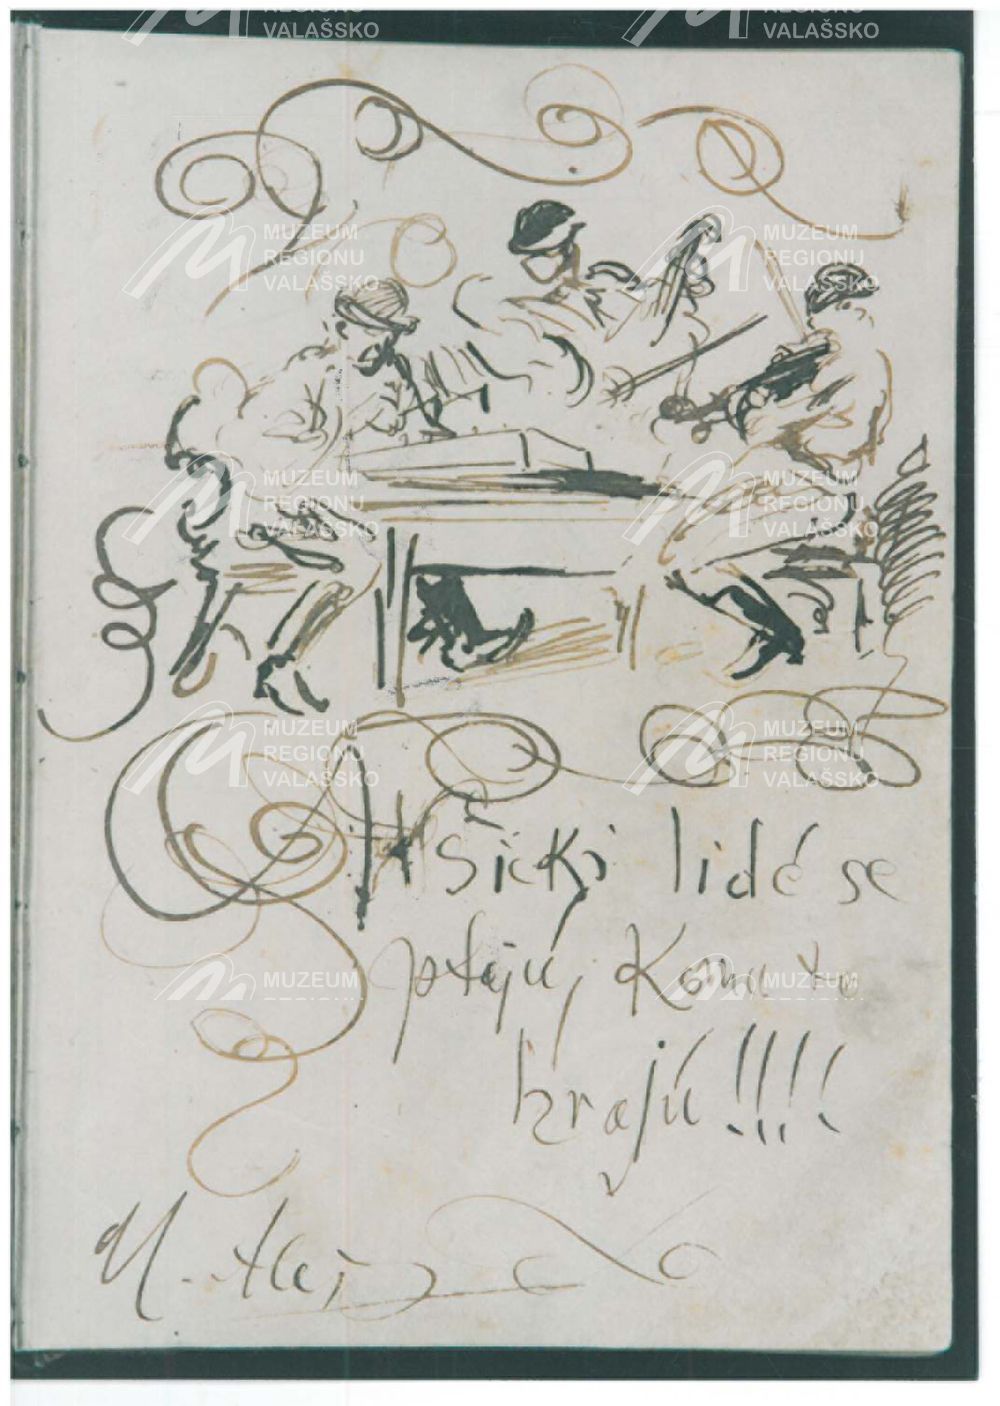 REGIONU
VALAŠSKO
REGIONU
VALAŠSKO
MUZEUM
REGIONU
VALAŠSKO
MUZEUM
REGIONU
VALAŠSKO
MUZEUM
REGIONU
VALAŠSKO
MUZEUM
REGIONU
VALAŠSKO
MUZEUM
REGIONU
VALAŠSKO
MUZEUM
REGIONU
VALAŠSKO
Všicki lidé se
ptajú, Komu tu
MUZEUM
MUZEUM
hrajú!!!!